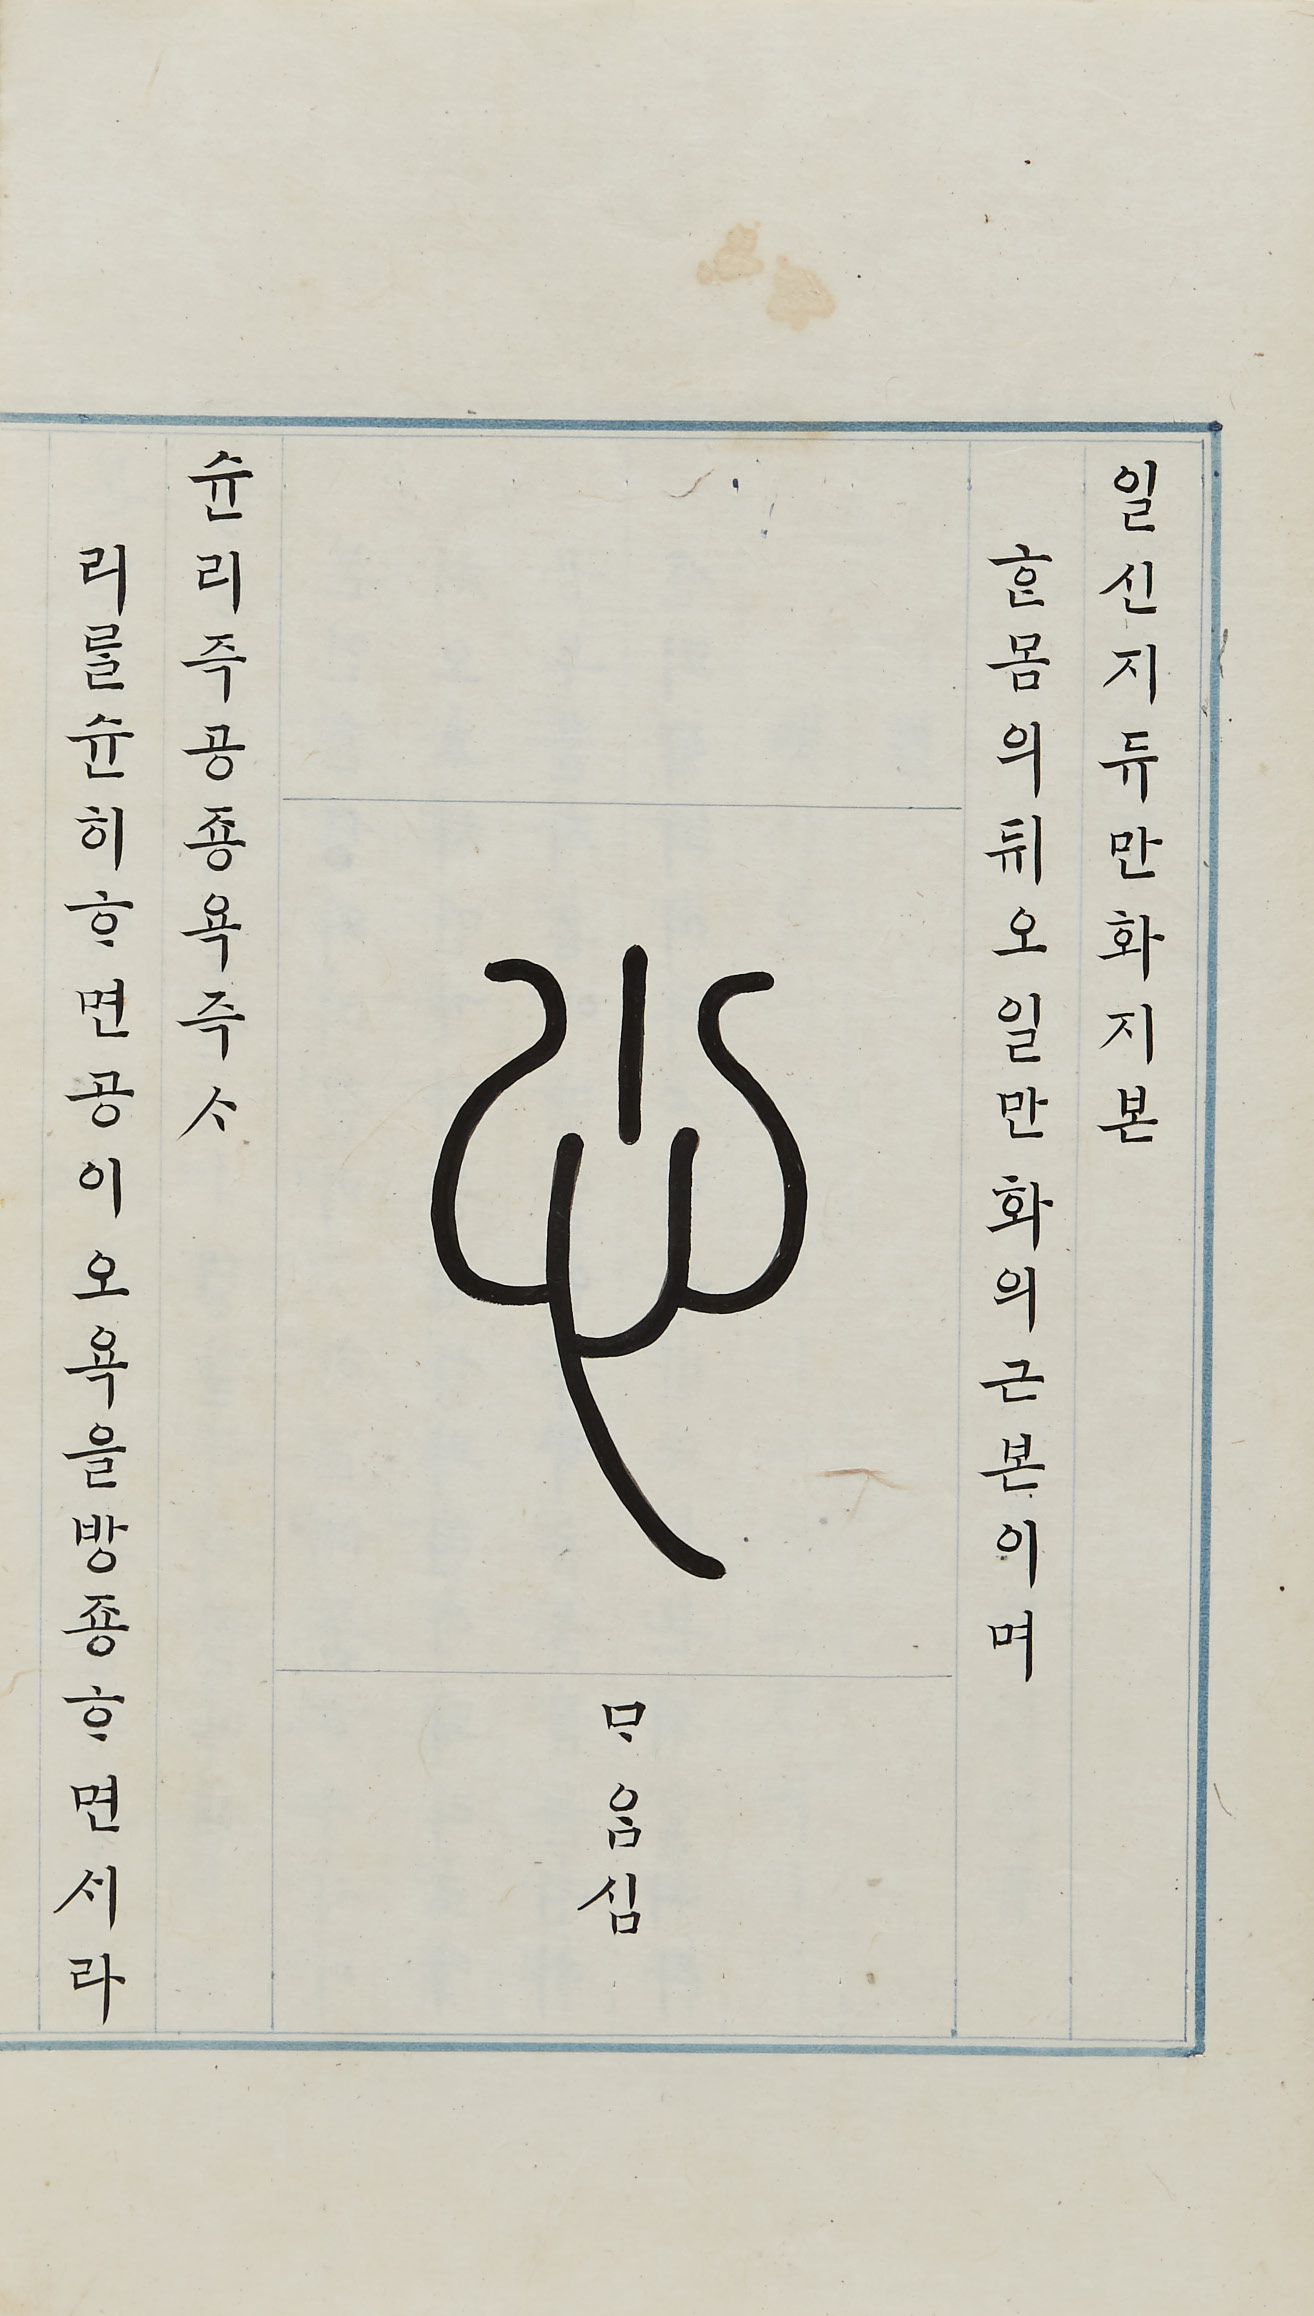 일신지듀만화지본
ᄒᆞᆫ몸의듀ㅣ오일만화의근본이며
心
ᄆᆞ음심
슌리즉공죵욕즉ᄉᆞ
리를슌히ᄒᆞ면공이오욕을방죵ᄒᆞ면ᄉᆞㅣ라